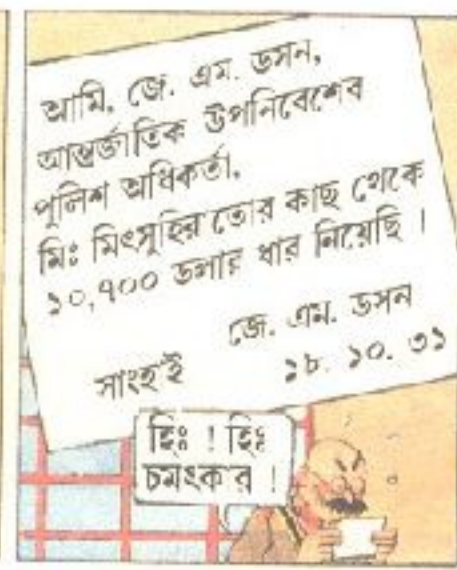 আমি, জে. এম. ডসন,
আন্তর্জাতিক উপনিবেশের
পুলিশ অধিকর্তা,
মিঃ মিৎসুহির তোর কাছ থেকে
১০,৭০০ ডলার ধার নিয়েছি ।
জে. এম. ডসন
সাংহাই ১৮. ১০. ৩১
হিঃ ! হিঃ
চমৎকার !